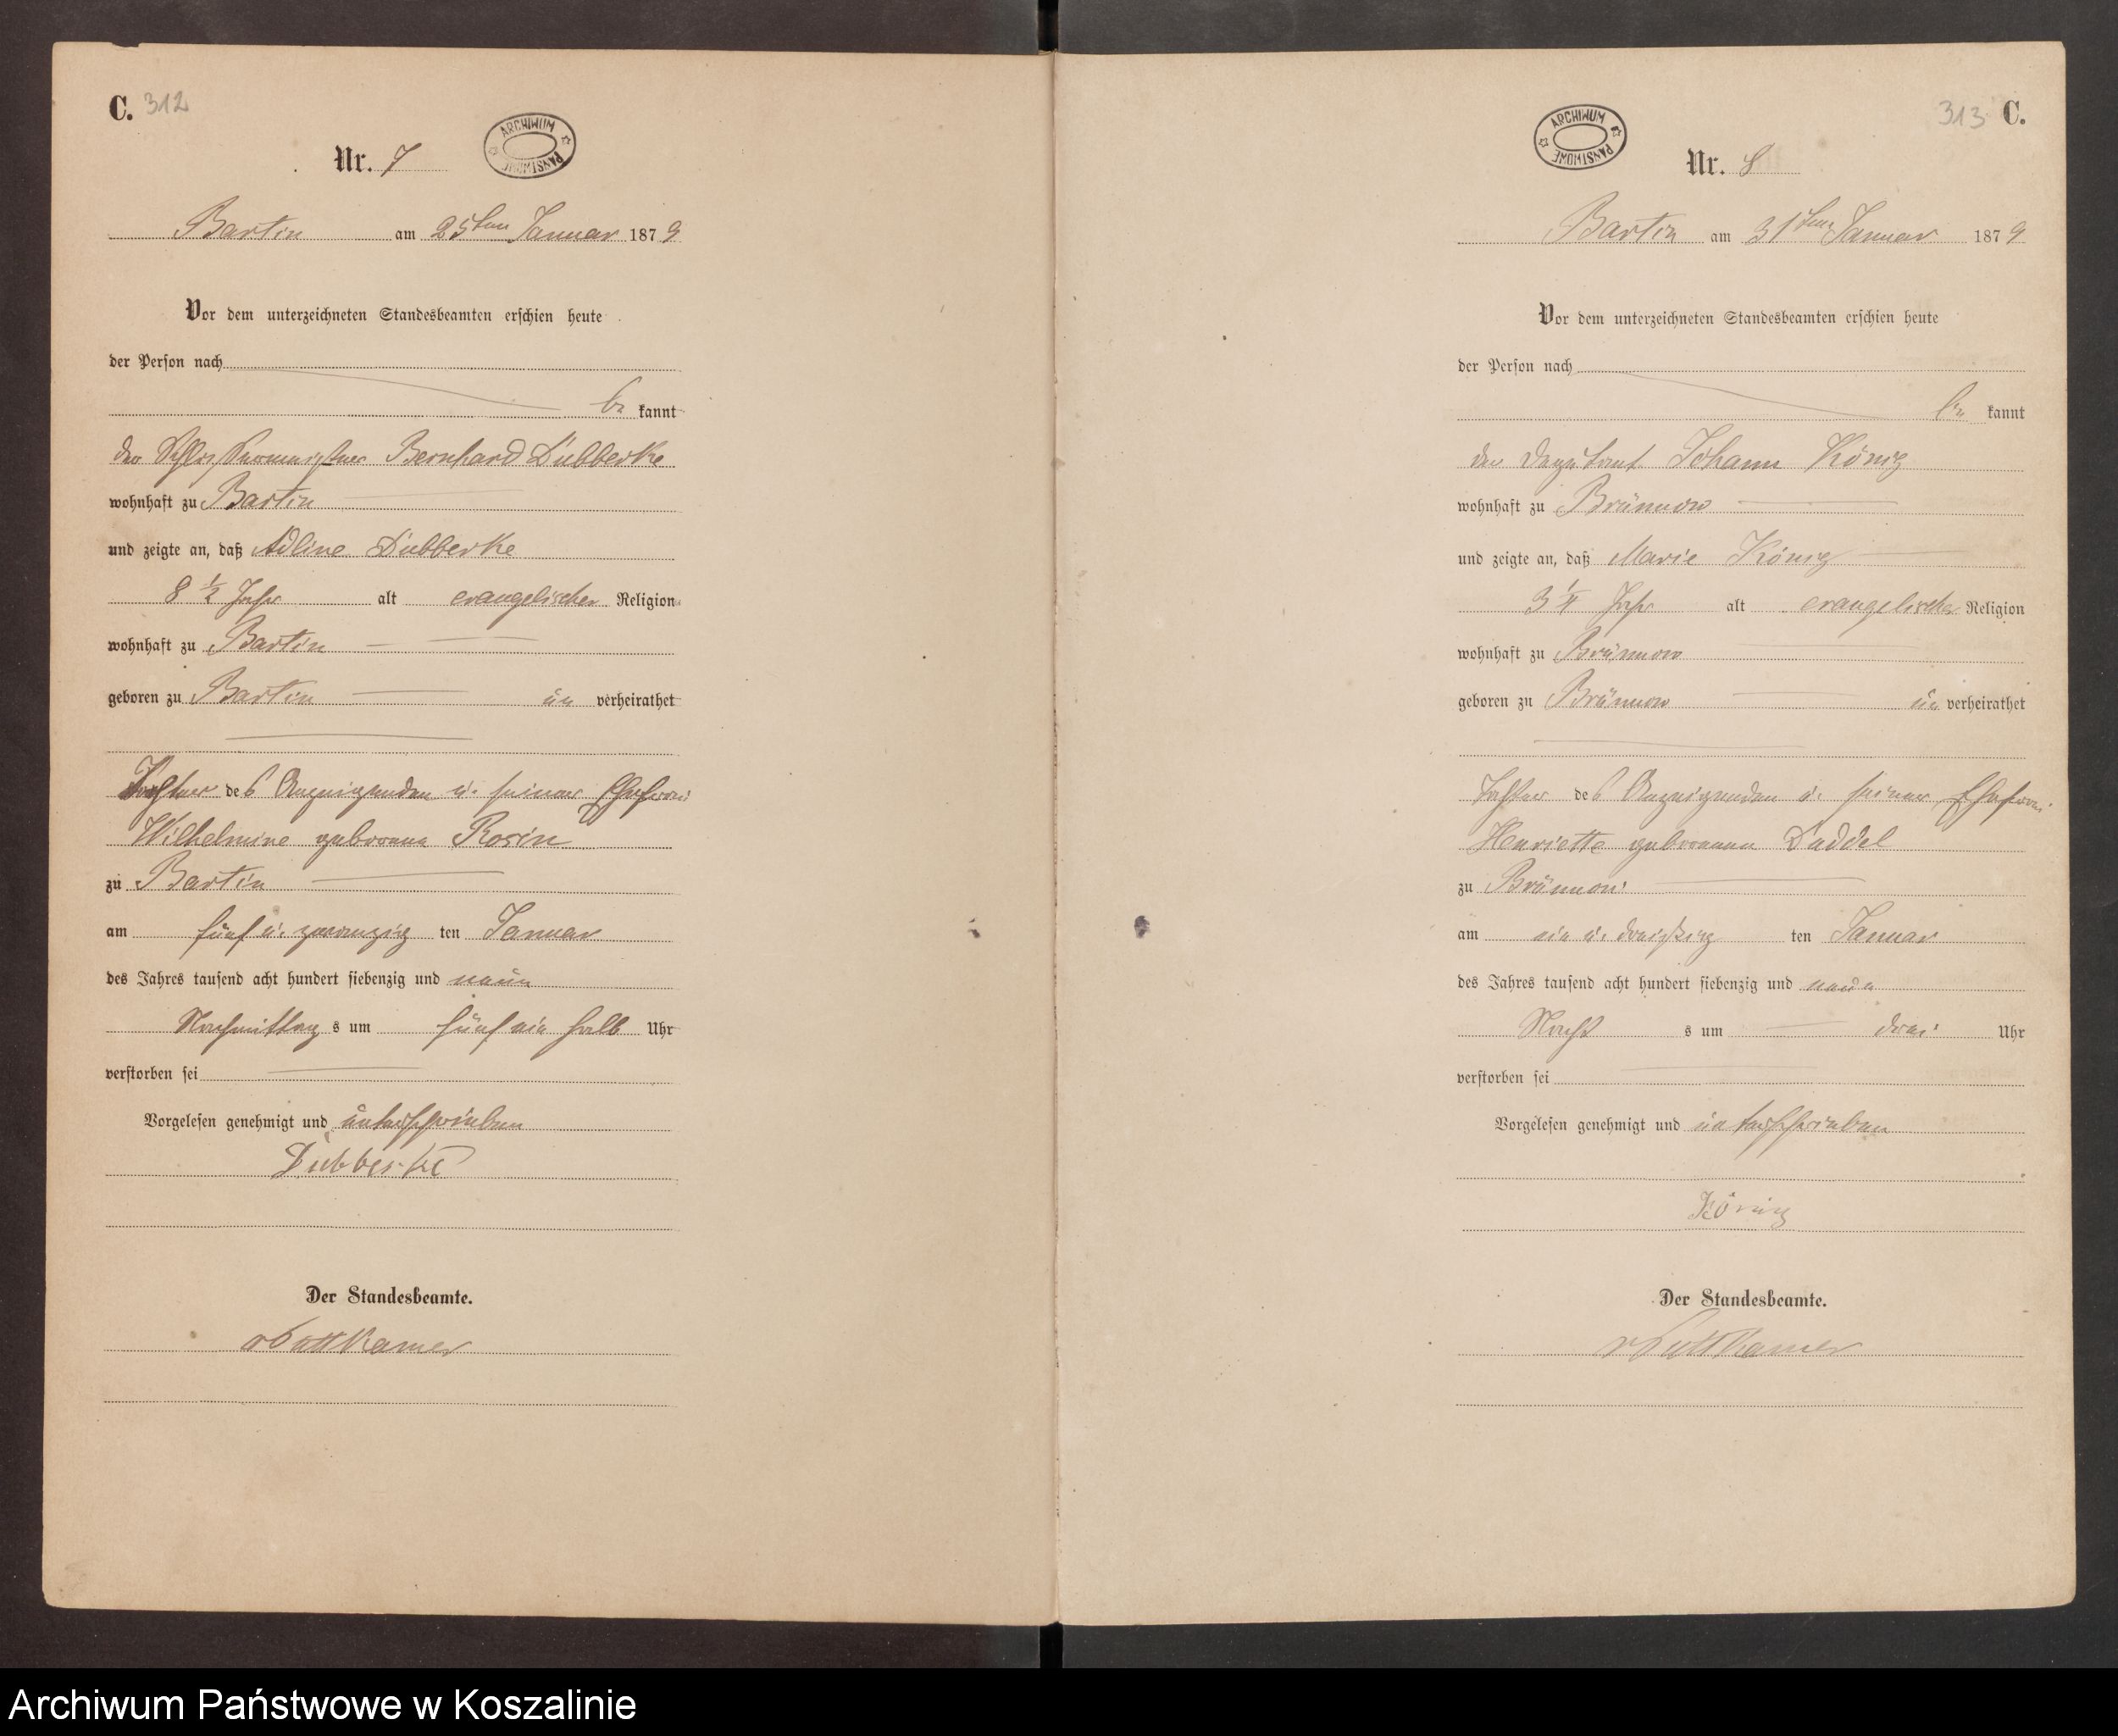 C. 312
ARCHIWUM PAŃSTWOWE
Nr. 7
Bartin am 25ten Januar 1879
Vor dem unterzeichneten Standesbeamten erschien heute
der Person nach
be kannt
der Bernhard Dubberke
wohnhaft zu Bartin
und zeigte an, daß Adline Dubberke
8 1/2 Jahr alt evangelischer Religion
wohnhaft zu Bartin
geboren zu Bartin un verheirathet
Tochter des Anzeigenden u. seiner Ehefrau
Wilhelmine geborene Rosin
zu Bartin
am fünf u. zwanzig ten Januar
des Jahres tausend acht hundert siebenzig und neun
Nachmittag s um fünf ein halb Uhr
verstorben sei
Vorgelesen genehmigt und unterschrieben
Dubberke
Der Standesbeamte.
vPuttkamer
313 C.
ARCHIWUM PAŃSTWOWE
Nr. 8
Bartin am 31ten Januar 1879
Vor dem unterzeichneten Standesbeamten erschien heute
der Person nach
be kannt
der Deputant Johann König
wohnhaft zu Brünnow
und zeigte an, daß Marie König
3 1/4 Jahr alt evangelischer Religion
wohnhaft zu Brünnow
geboren zu Brünnow un verheirathet
Tochter des Anzeigenden u. seiner Ehefrau
Henriette geborenen Daddel
zu Brünnow
am ein u. dreißig ten Januar
des Jahres tausend acht hundert siebenzig und neun
Nacht s um drei Uhr
verstorben sei
Vorgelesen genehmigt und unterschrieben
König
Der Standesbeamte.
vPuttkamer
Archiwum Państwowe w Koszalinie